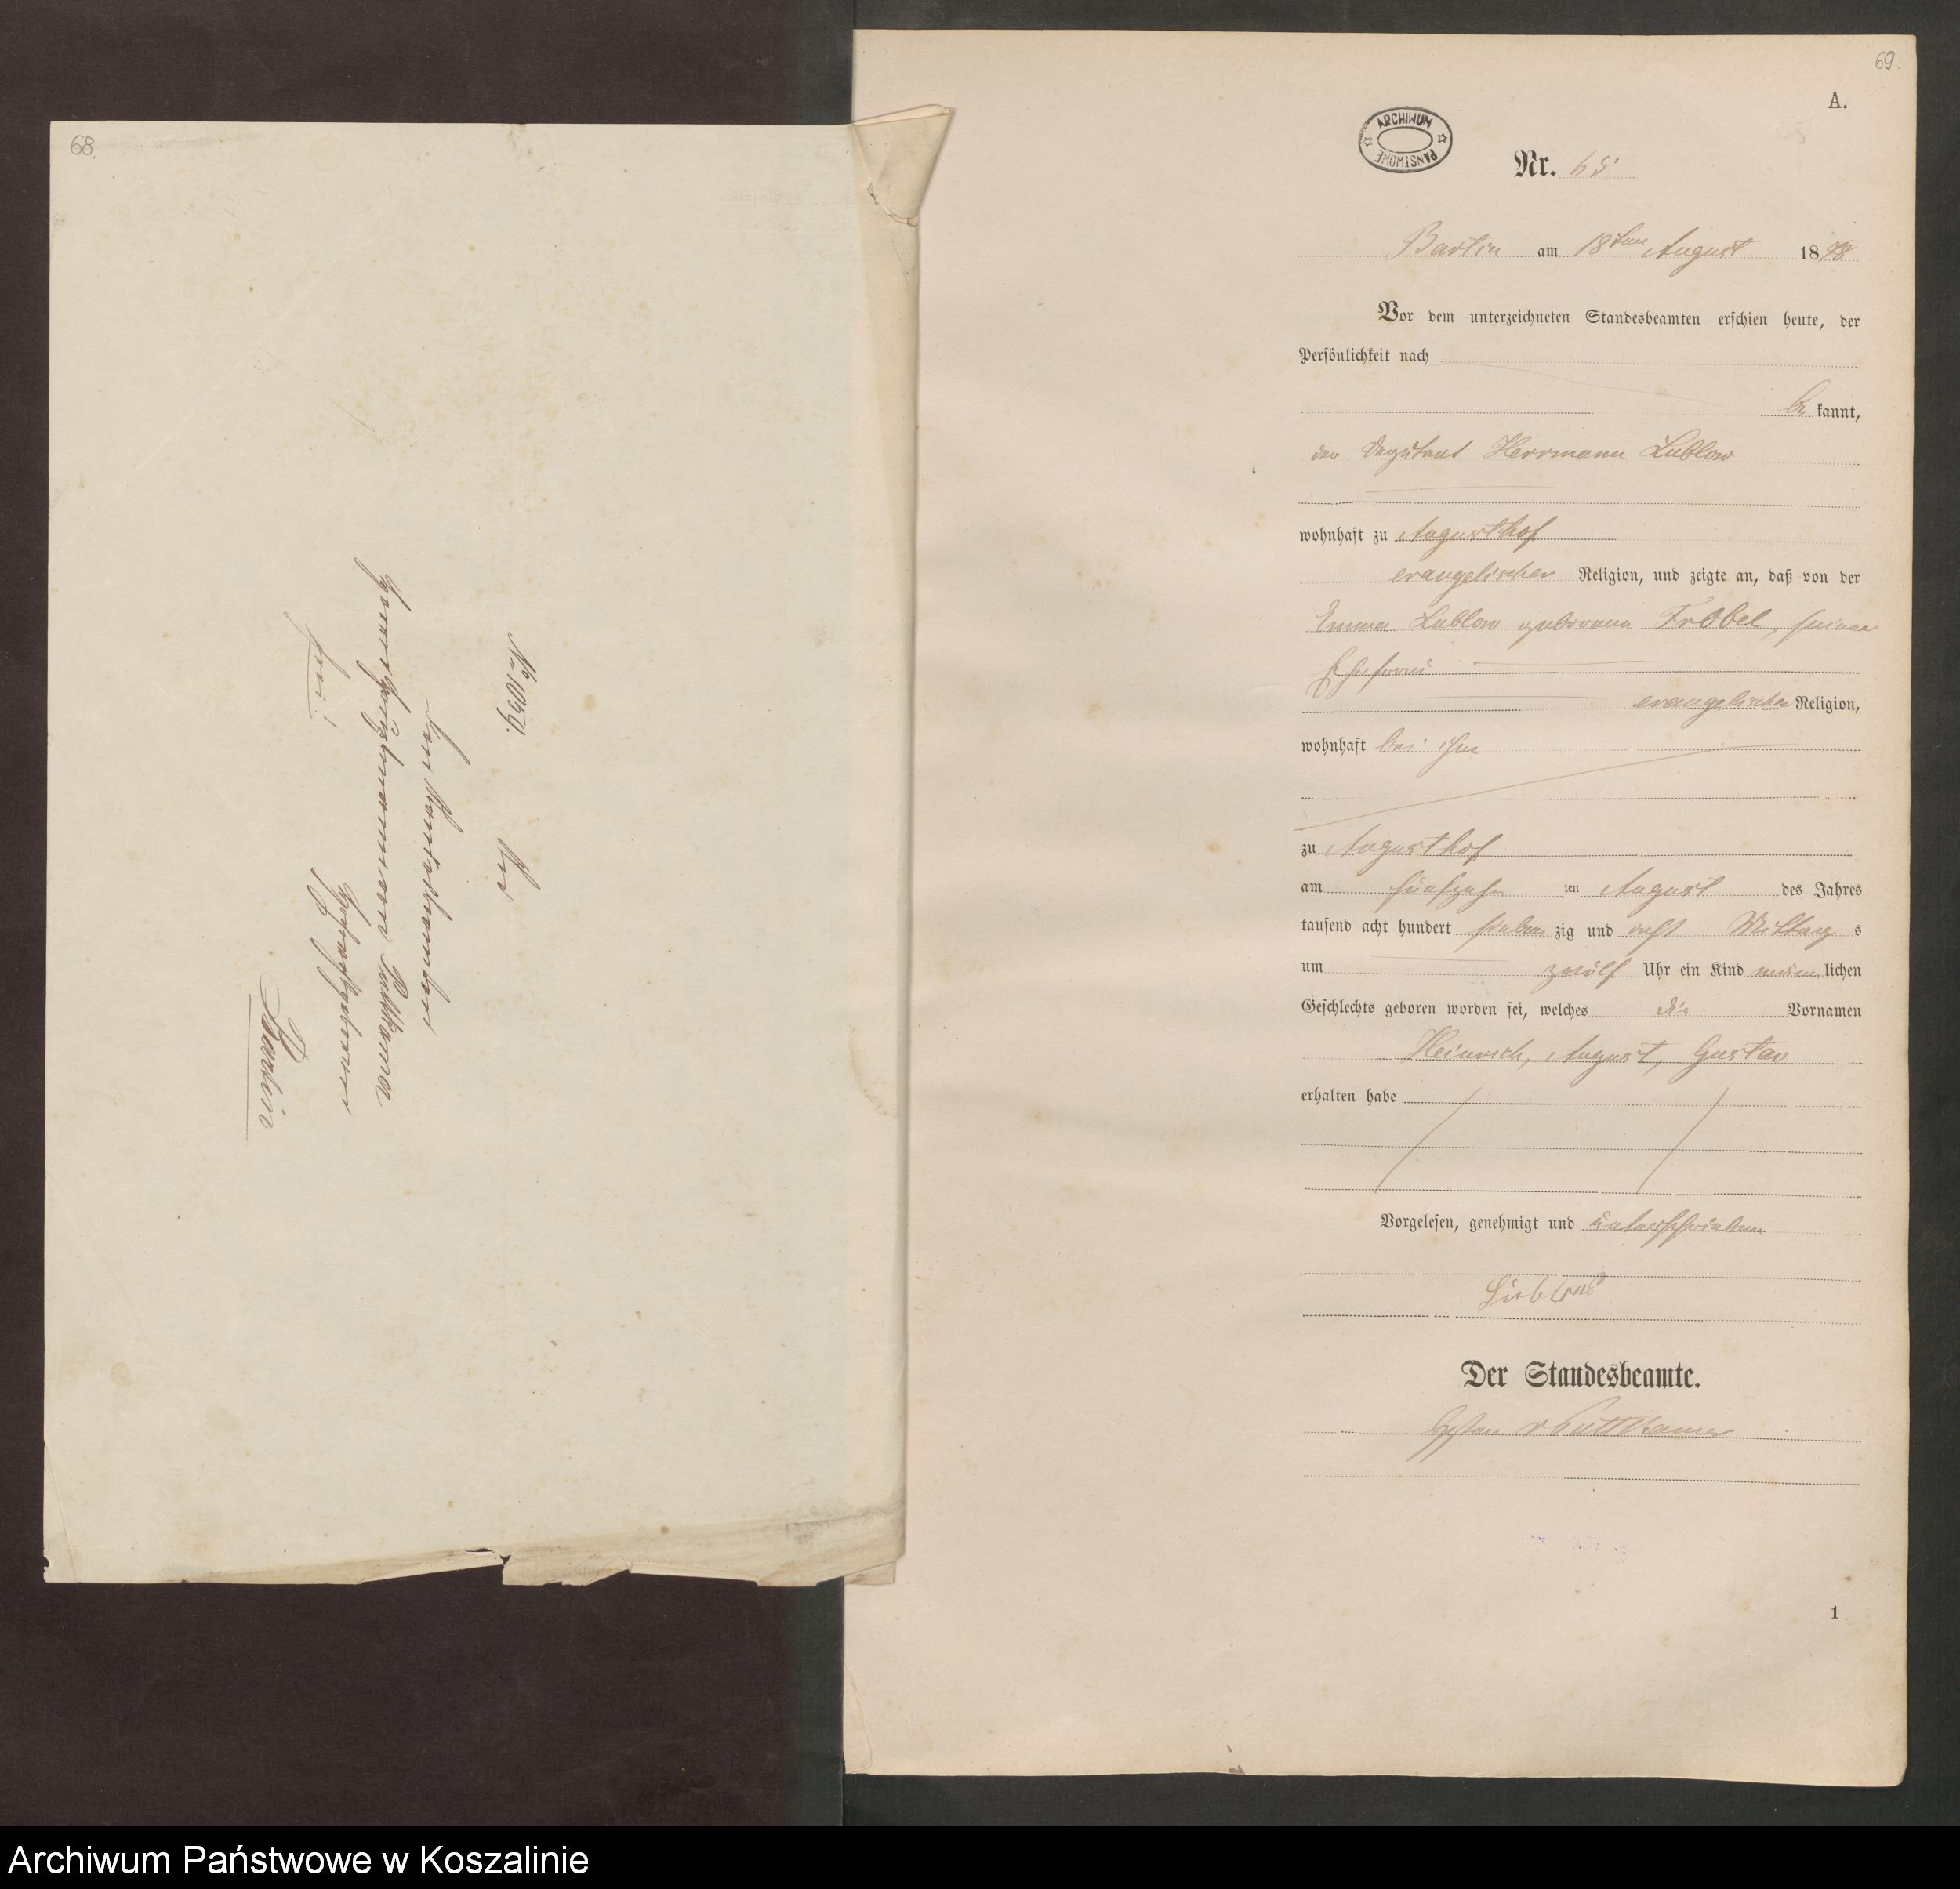 68.
No 1059.
An
den Standesbeamten
Herrn Hauptmann von Puttkamer
Hochwohlgeboren
frei!
Bartin
69.
A.
ARCHIWUM PAŃSTWOWE
Nr. 65
Bartin am 18ten August 1878
Vor dem unterzeichneten Standesbeamten erschien heute, der
Persönlichkeit nach
be kannt,
der Deputant Herrmann Lüblow
wohnhaft zu Augusthof
evangelischer Religion, und zeigte an, daß von der
Emma Lüblow geborenen Fröbel, seiner
Ehefrau
evangelischer Religion,
wohnhaft bei ihm
zu Augusthof
am fünfzehn ten August des Jahres
tausend acht hundert sieben zig und acht Mittag s
um zwölf Uhr ein Kind männ lichen
Geschlechts geboren worden sei, welches die Vornamen
Heinrich, August, Gustav
erhalten habe
Vorgelesen, genehmigt und unterschrieben
Lüblow
Der Standesbeamte.
v Puttkamer
1
Archiwum Państwowe w Koszalinie